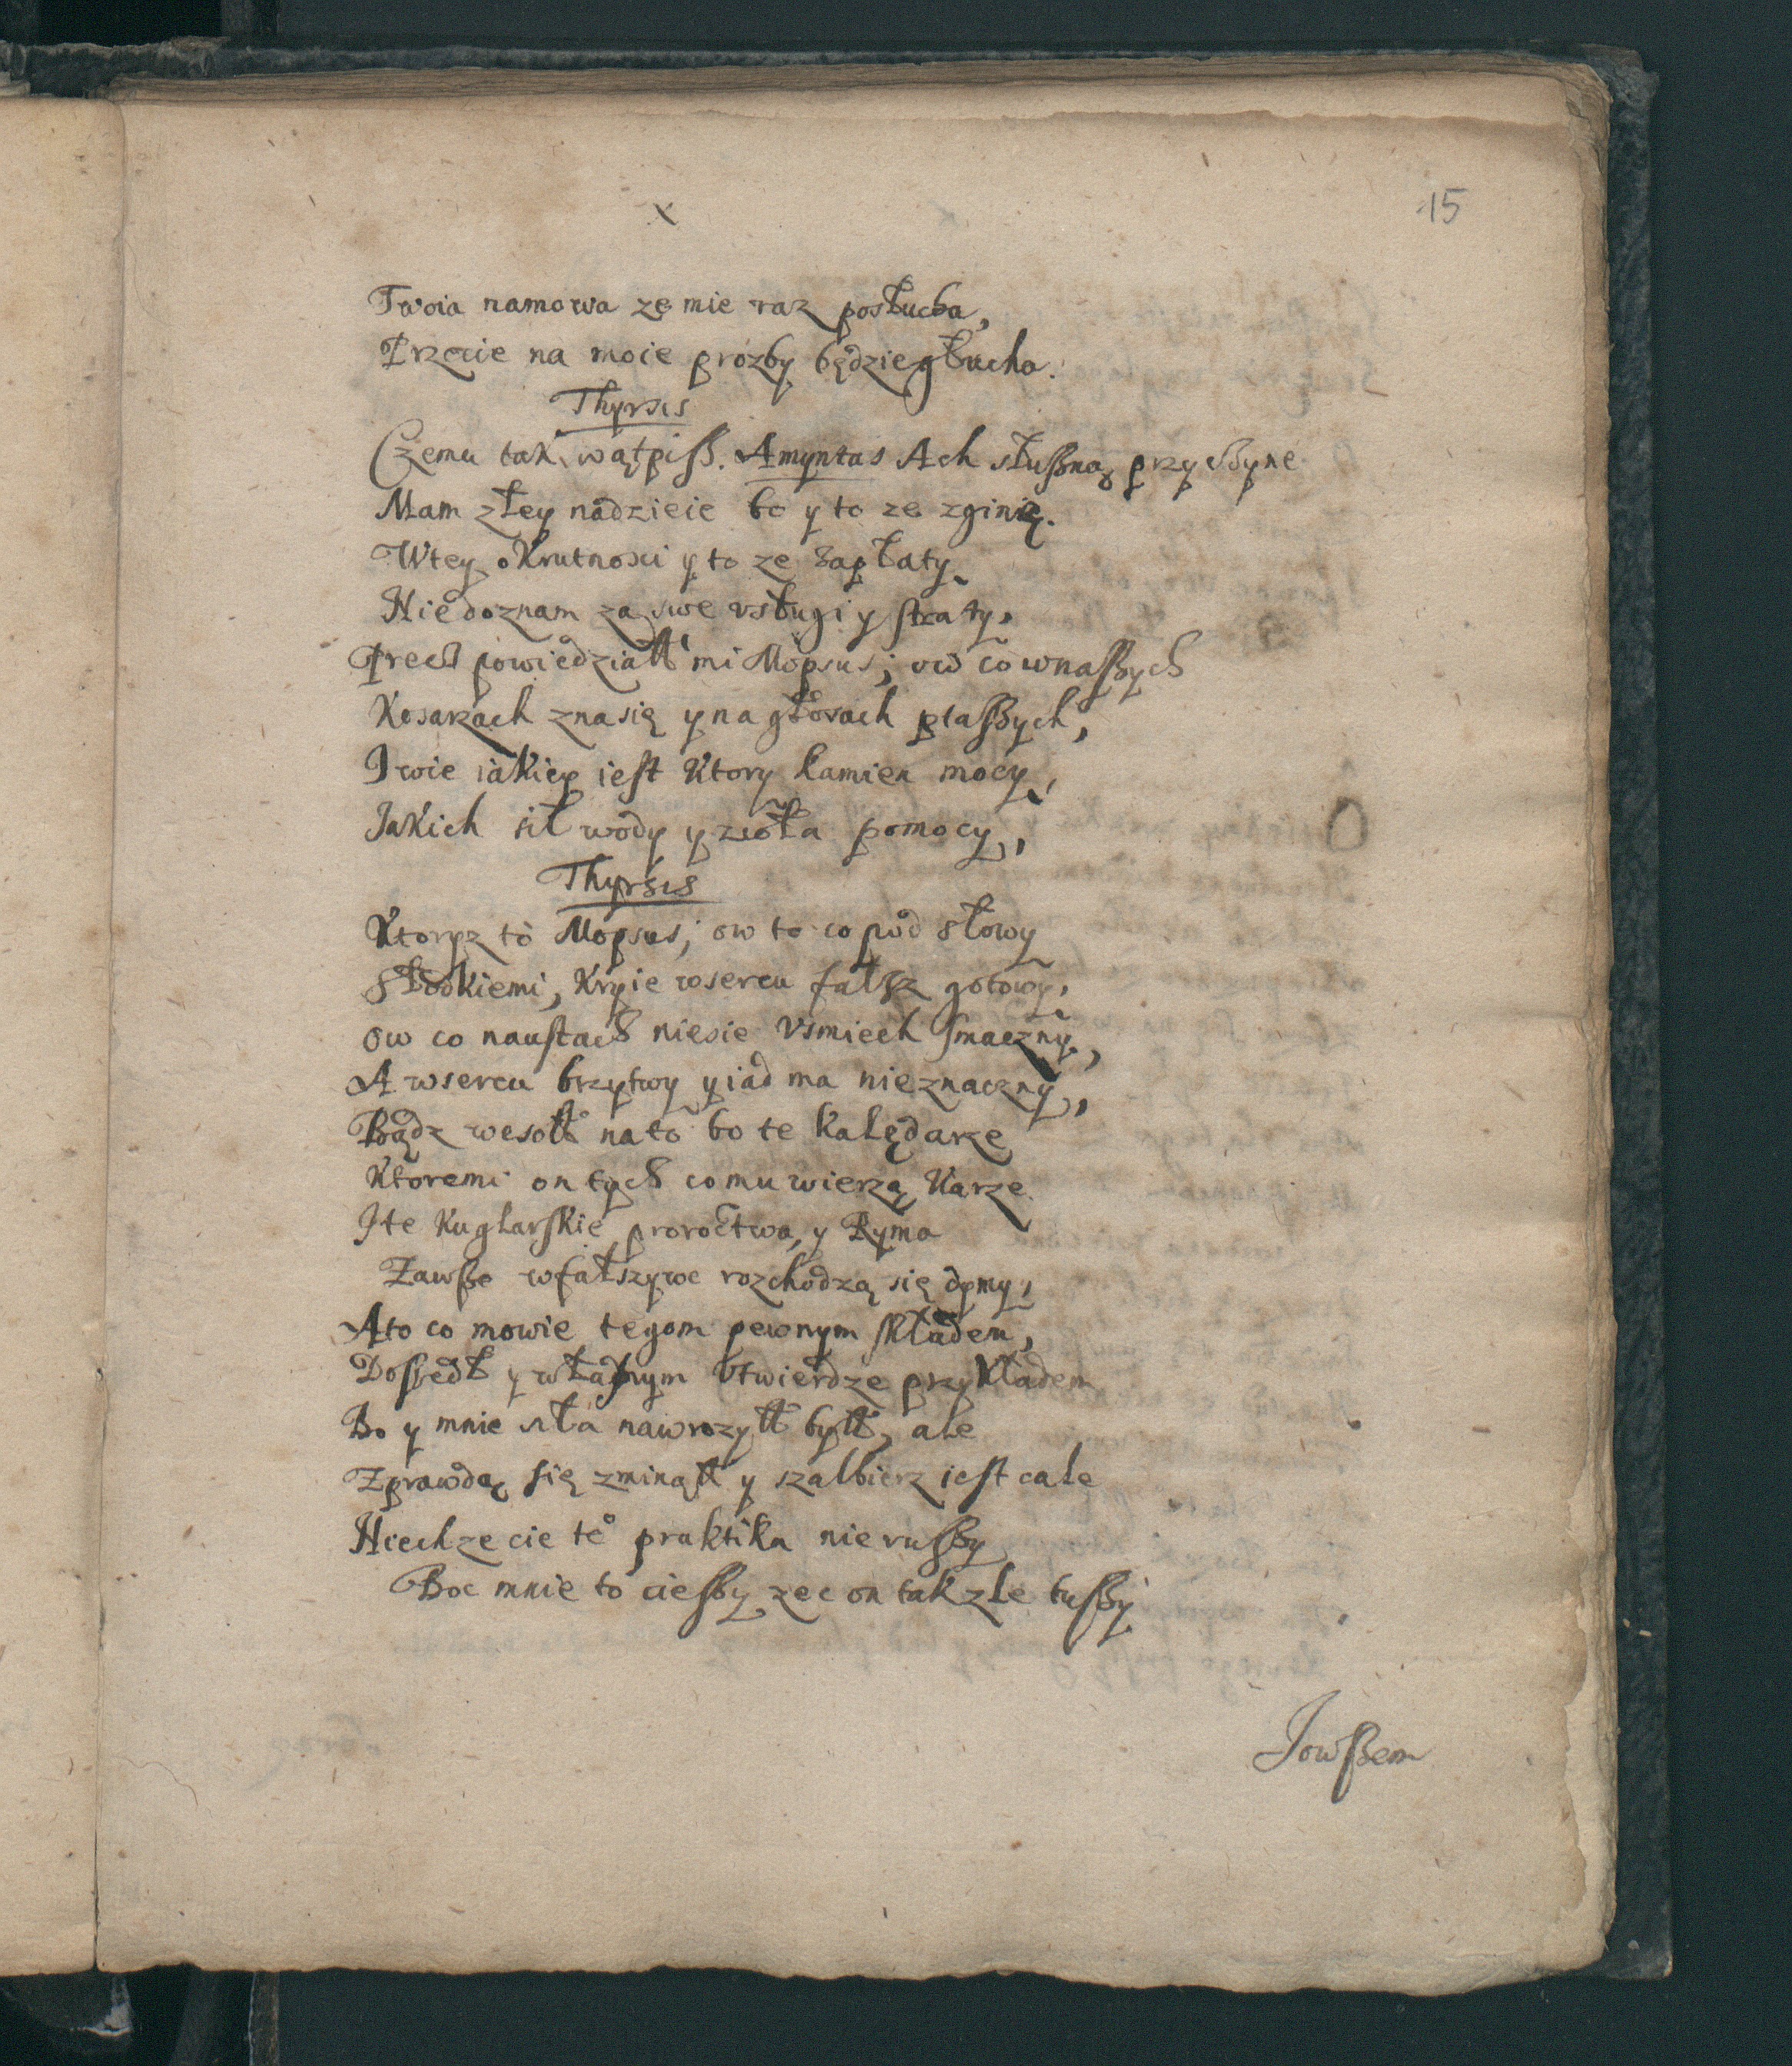 x
15
Twoia namowa ze mie raz posłucha,
Przecie na moie prozby będzie głucha.
Thyrsis
Czemu tak wątpiſz. Amyntas Ach słuſzną przyczyne
Mam złey nadzieie bo y to ze zginię.
Wtey okrutnosci y to ze zapłaty
Nie doznam za swe vsługi y straty,
Przed powiedziałł mi Mopsus; ow co wnaſzych
Kosarzach zna się y na głosach ptaſzych,
I wie iakiey ieſt Ktory kamien mocy,
Jakich sił wody y zioła pomocy,
Thyrsis
Ktoryz to Mopsus; ow to co pod słowy
Słodkiemi, Kryie wsercu fałsz gotowy,
ow co nauſtach niesie Vsmiech ſmaczny,
A wsercu brzytwy y iad ma nieznaczny,
Bądz wesołł na to bo te kalędarze
Ktoremi on tych co mu wierzą Karze
I te Kuglarſkie proroctwa, y Rymy
Zawſze wfałszywe rozchodzą się dymy,
A to co mowie tegom pewnym ſkładem,
Doſzedł y własnym Vtwierdze przykładem
Bo y mnie siła nawrozyłł byłł, ale
Zprawdą ſię zminąłł y szalbierz ieſt cale
Niechze cie te praktika nie ruſzy
Boc mnie to cieſzy zec on tak zle tuſzy
Jowſzem